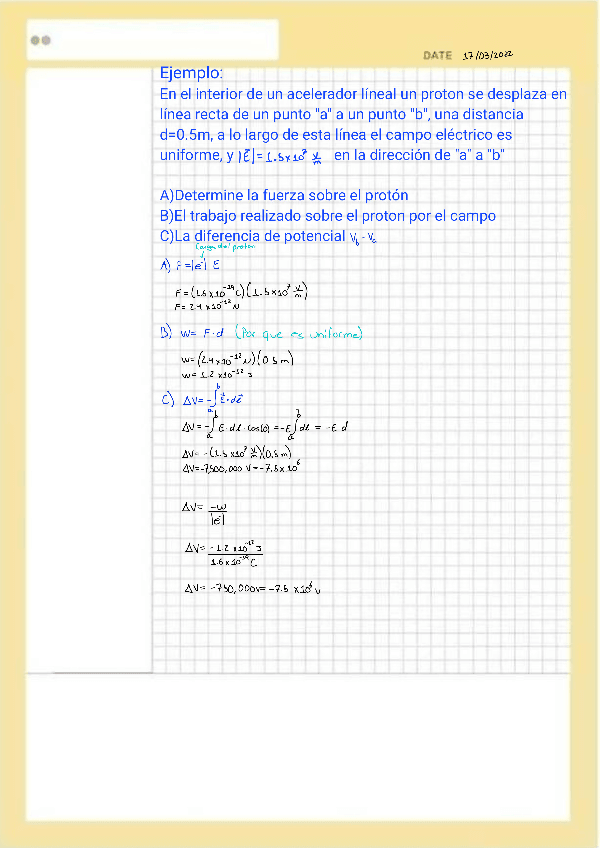 DATE 17/03/2022
Ejemplo:
En el interior de un acelerador líneal un proton se desplaza en
línea recta de un punto "a" a un punto "b", una distancia
d=0.5m, a lo largo de esta línea el campo eléctrico es
uniforme, y |E⃗| = 1.5x10⁷ V/m en la dirección de "a" a "b"
A)Determine la fuerza sobre el protón
B)El trabajo realizado sobre el proton por el campo
C)La diferencia de potencial V_b - V_a
Carga del proton
A) F = |e⁻| E
F = (1.6 x10⁻¹⁹ C)(1.5 x10⁷ V/m)
F = 2.4 x10⁻¹² N
B) W = F·d (Por que es uniforme)
W = (2.4 x10⁻¹² N)(0.5 m)
W = 1.2 x10⁻¹² J
C) ΔV = -∫_a^b E⃗·dℓ⃗
ΔV = -∫_a^b E·dℓ·cos(0) = -E∫_a^b dℓ = -E d
ΔV = -(1.5 x10⁷ V/m)(0.5 m)
ΔV = -7500,000 V = -7.5 x 10⁶
ΔV = -W/|e⁻|
ΔV = -1.2 x10⁻¹² J / 1.6 x 10⁻¹⁹ C
ΔV = -750,000V = -7.5 x10⁶ V